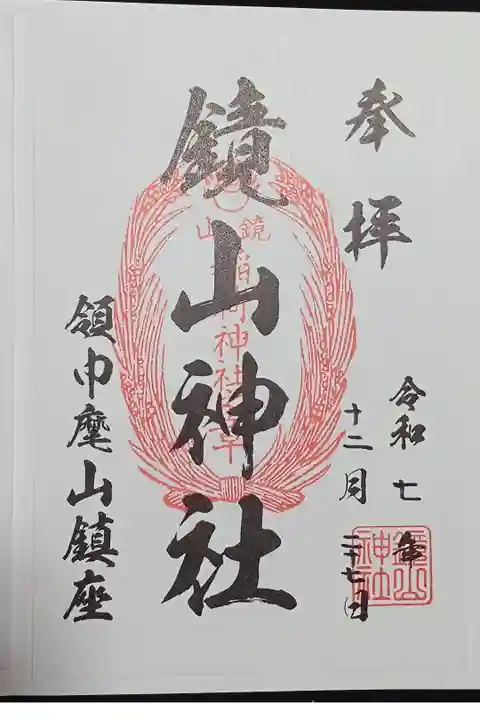 奉拝
令和七年
十二月二十七日
鏡山神社
鏡山
稲荷神社
領巾麾山鎮座
鏡山
神社